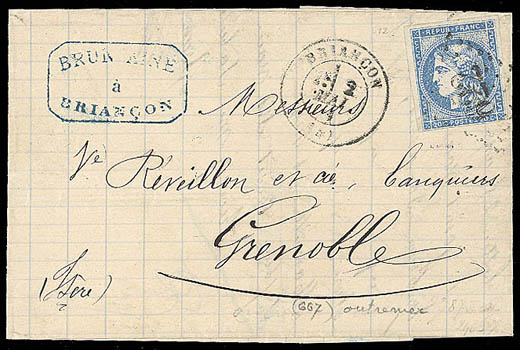 BRUN AINÉ
à
BRIANÇON
BRIANÇON
2
MAI
REPUB FRANC
20 POSTES 20
Messieurs
Ve Réveillon et cie, banquiers
Grenoble
(Isère)
(667) outremer